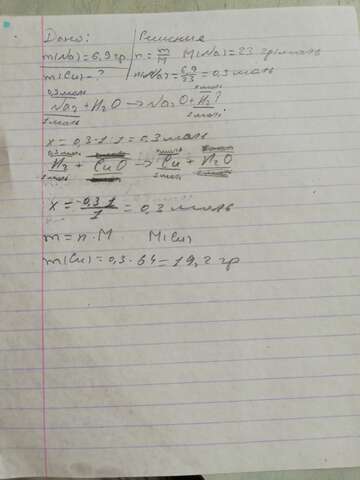 Дано: Решение
m(Na)=6,9 гр n=m/M M(Na)=23 гр/моль
m(Cu)-? n(Na)=6,9/23=0,3 моль
0,3 моль
Na₂+H₂O→Na₂O+H₂↑
1 моль 1 моль
x=0,3·1:1=0,3 моль
0,3 моль
H₂+CuO→Cu+H₂O
1 моль 1 моль
x=0,3·1/1=0,3 моль
m=n·M M(Cu)
m(Cu)=0,3·64=19,2 гр